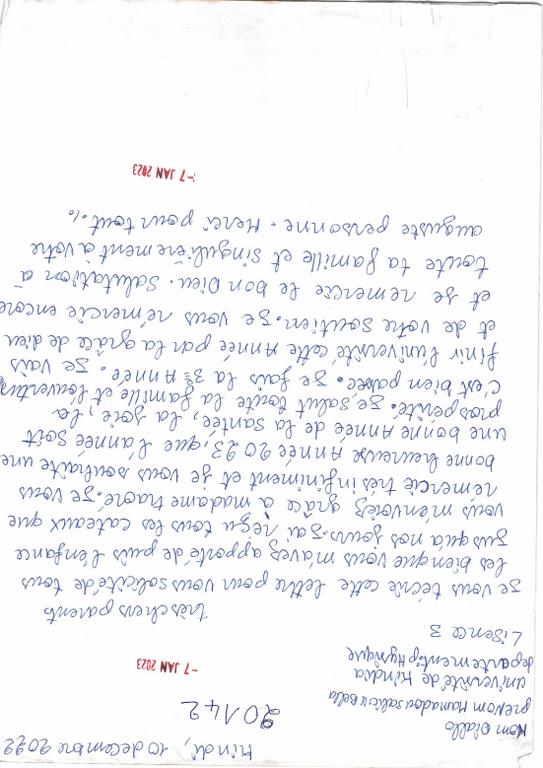 Kindi, 10 decembre 2022
Nom Diallo
preNom Mamadou saliou Bella
université de Kindia
departement: pHysique
Lisence 3
20142
-7 JAN 2023
trèschers parents
je vous técrie cette lettre pour vous solicité de tous
les bien que vous m'avez apporté depuis l'enfance
jusqu'a nos jours. j'ai reçu tous les cateaux que
vous m'envoiez grâce a madame traoré. je vous
remercie très infiniment et je vous souhaite une
bonne heureuse Année 2023, que l'année soit
une bonne Année de la santée, la joie, la
prosperité. je salut toute la famille et l'ouverture
c'est bien passée. je fais la 3e Année. je vais
finir l'université cette Année par la grâce de dieu
et de votre soutien. je vous rémercie encore
et je remercie le bon Dieu. Salutation à
toute ta famille et singulièrement à votre
auguste personne. Merci pour tout.
-7 JAN 2023